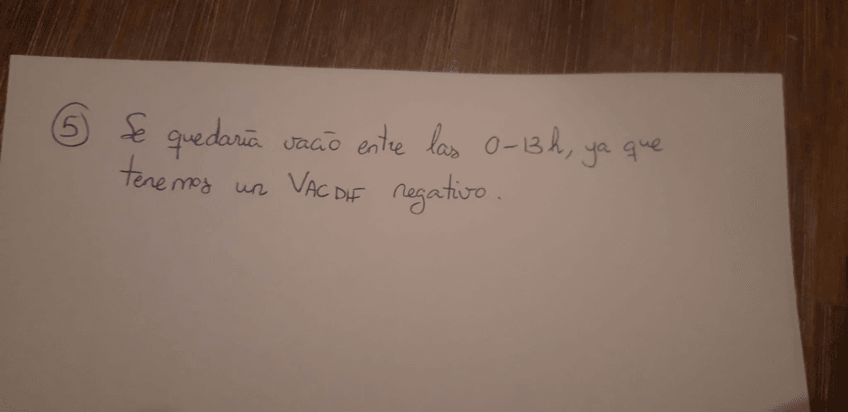 ⑤ Se quedaría vacío entre las 0-13h, ya que
tenemos un VACDIF negativo.